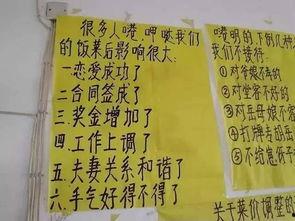 很多人喽呷哒我们
的饭菜后影响很大:
一恋爱成功了
二合同签成了
三奖金增加了
四.工作上调了
五夫妻关系和谐了
六.手气好得不得了
喽明的下例几种
我们不接待:
①对爷娘不孝的
②对堂客不好的
③对岳母娘不
④打牌专胡
⑤不给崽
关于菜价调整的